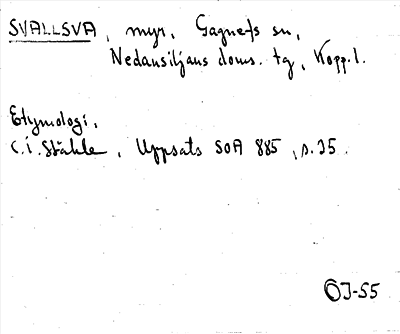 SVALLSVA, myr, Gagnefs sn,
Nedansiljans doms. tg, Kopp. l.
Etymologi.
C.I. Ståhle, Uppsats SOA 885, s. 35.
ÖJ-55